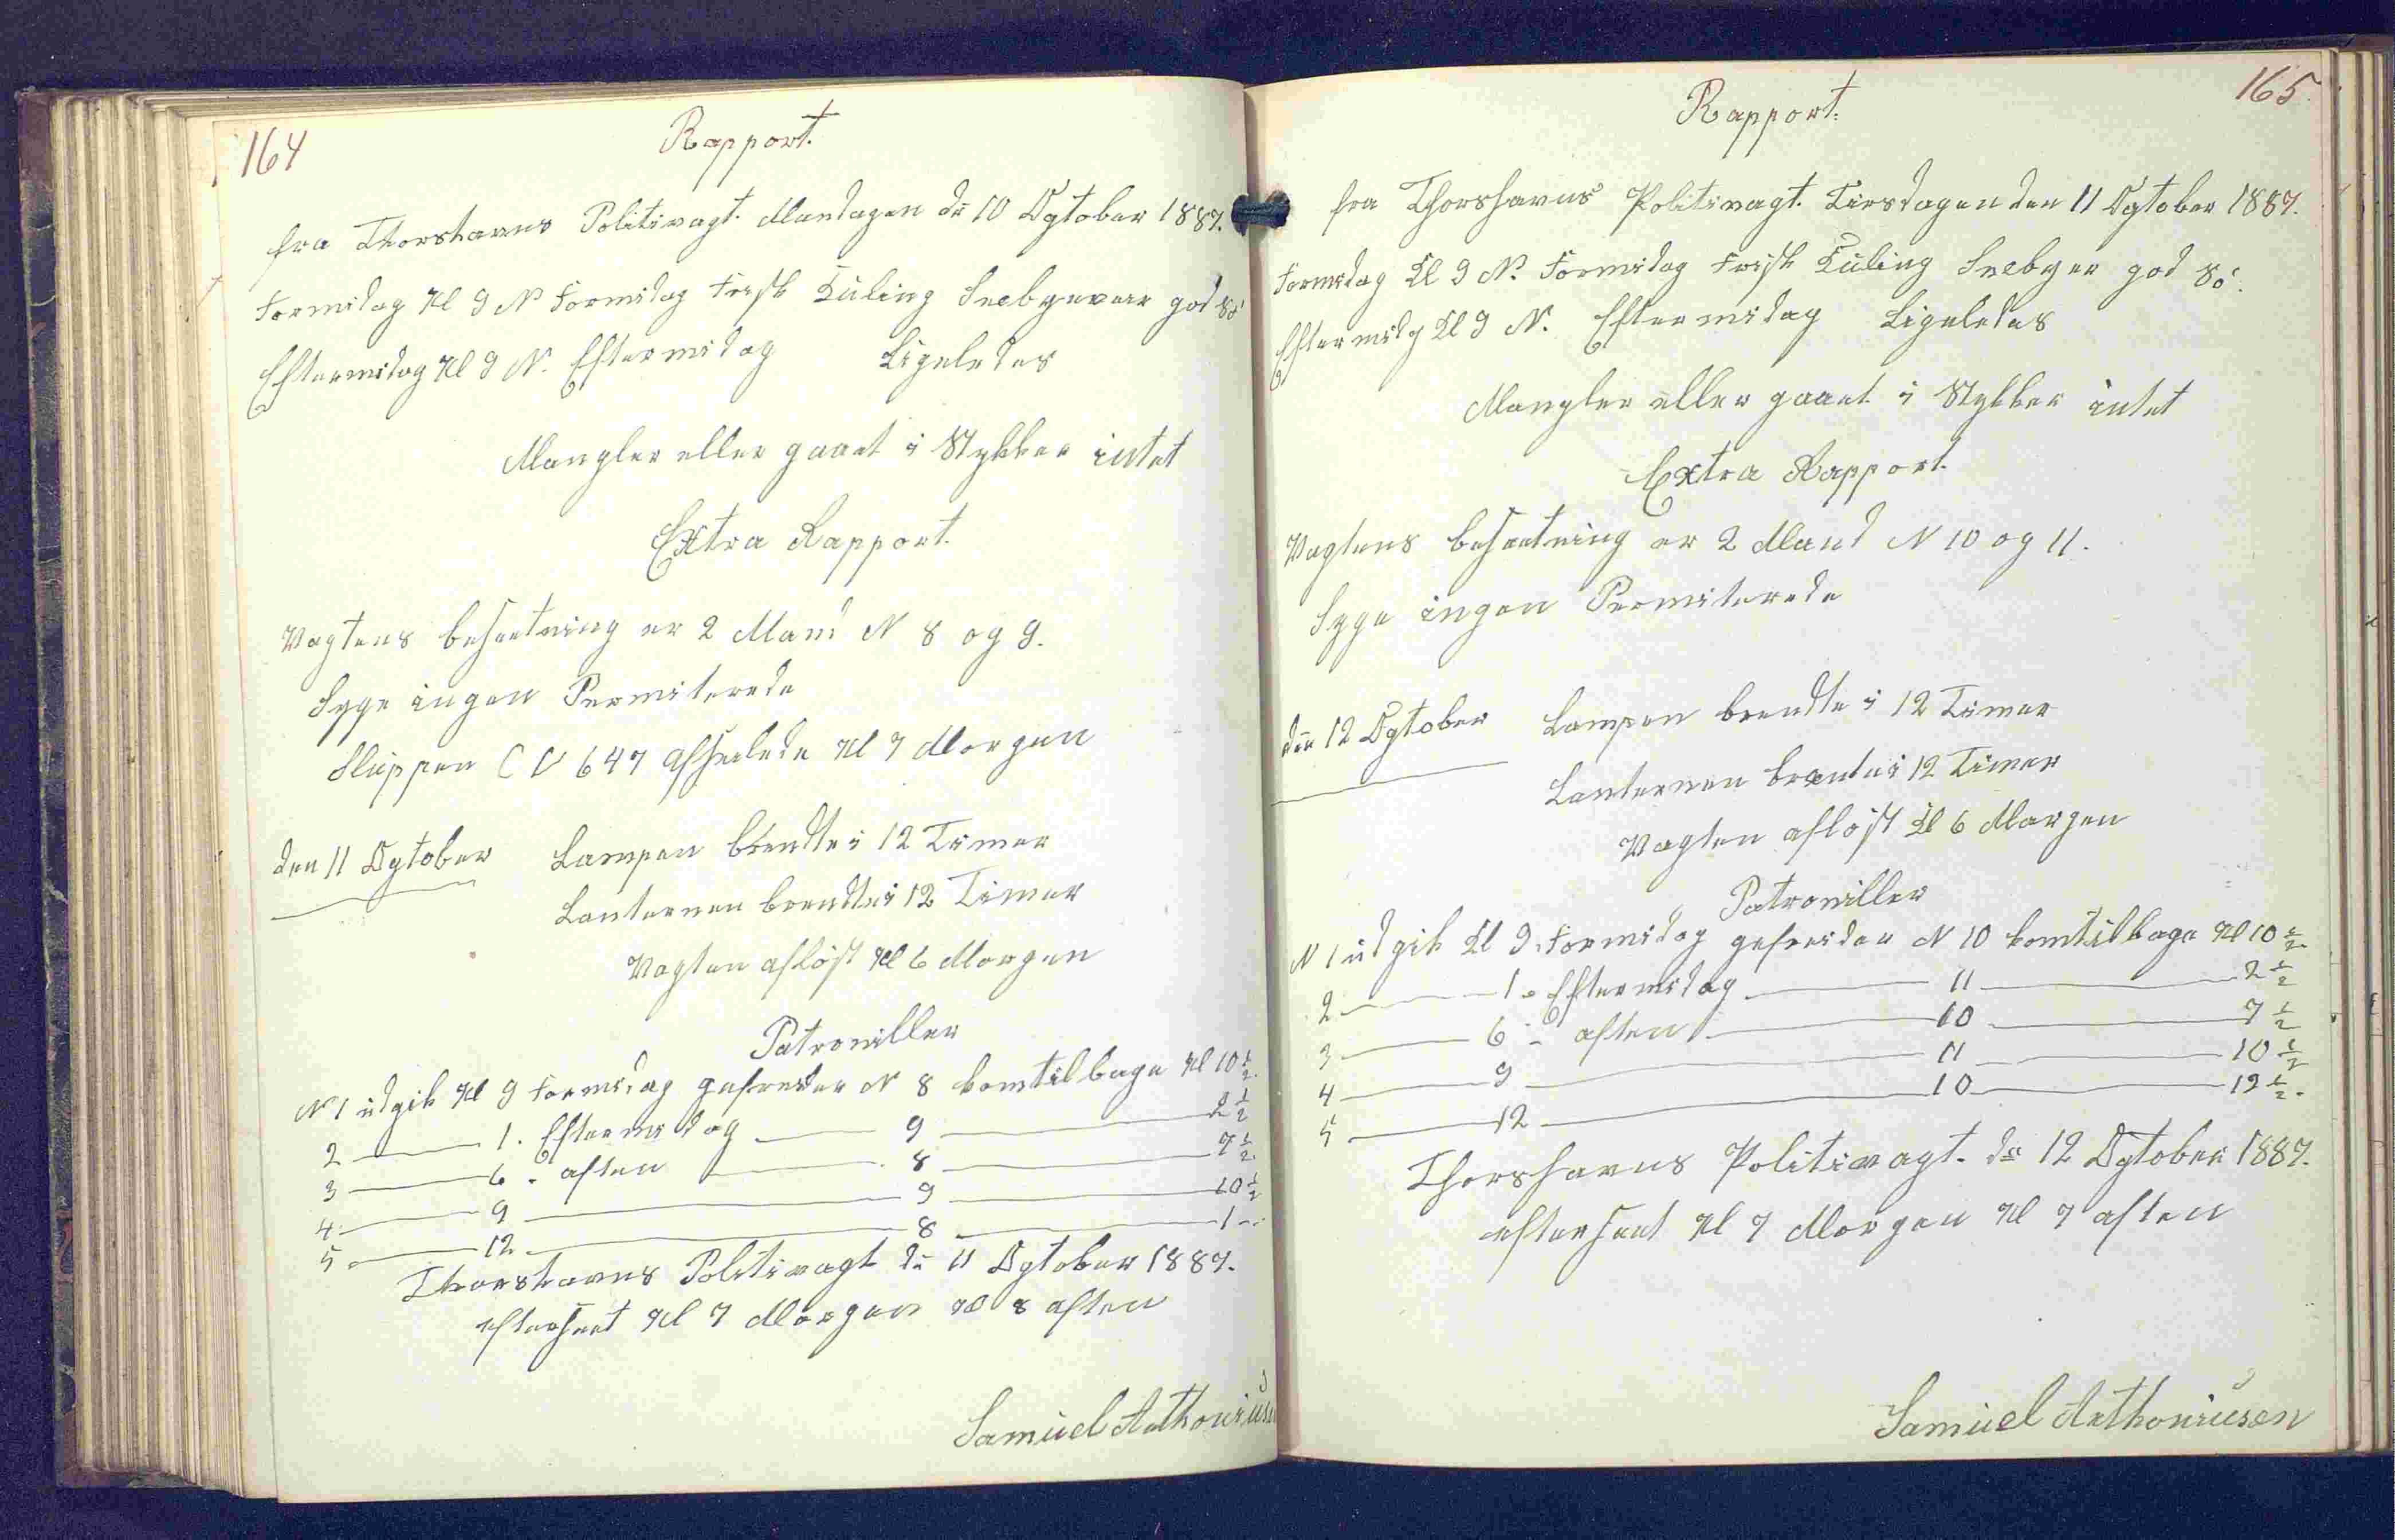 164
Rapport.
fra Thorshavns Politivagt. Mandagen dn 10 Ogtober 1887.
Formidag Kl 9 N Formidag Frisk Kuling Sneebyeveir god
Eftermidag Kl 9 N. Eftermidag Ligeledes
Mangler eller gaaet i Stykker intet
Extra Rapport.
Vagtens besætning er 2 Mand N 8 og 9.
Syge ingen Permiterede
Sluppen C V 647 afseilede Kl 7 Morgen
den 11 Ogtober Lampen brendte i 12 Timer
Lanternen brendte i 12 Timer
Vagten afløst Kl 6 Morgen
Patrouiller
N 1 udgik Kl 9 Formidag gefreider N 8 komtilbage Kl 10 1/2.
2 — 1. Eftermidag — 9 — 2 1/2
3 — 6 - aften — 8 — 7 1/2.
4 — 9 — 9 — 10 1/2
5 — 12 — 8 — 1 -
Thorshavns Politivagt dn 11 Ogtober 1887.
efterseet Kl 7 Morgen Kl 8 aften
Samuel Anthoniusen
165
Rapport.
fra Thorshavns Politivagt. Tirsdagen den 11 Ogtober 1887.
Formidag Kl 9 N. Formidag Frisk Kuling Sneebyer god
Eftermidg Kl 9 N. Eftermidag Ligeledes
Mangler eller gaaet i Stykker intet
Extra Rapport.
Vagtens besætning er 2 Mand N 10 og 11.
Syge ingen Permiterede
den 12 Ogtober Lampen brendte i 12 Timer
Lanternen brente i 12 Timer
Vagten afløst Kl 6 Morgen
Patrouiller
N 1 udgik Kl 9 Formidag gefreider N 10 komtilbage Kl 10 1/2.
2 — 1 - Eftermidag — 11 — 2 1/2
3 — 6 - aften — 10 — 7 1/2
4 — 9 — 11 — 10 1/2
5 — 12 — 10 — 12 1/2.
Thorshavns Politivagt. dn 12 Ogtober 1887.
efterseet Kl 7 Morgen Kl 7 aften
Samuel Anthoniusen